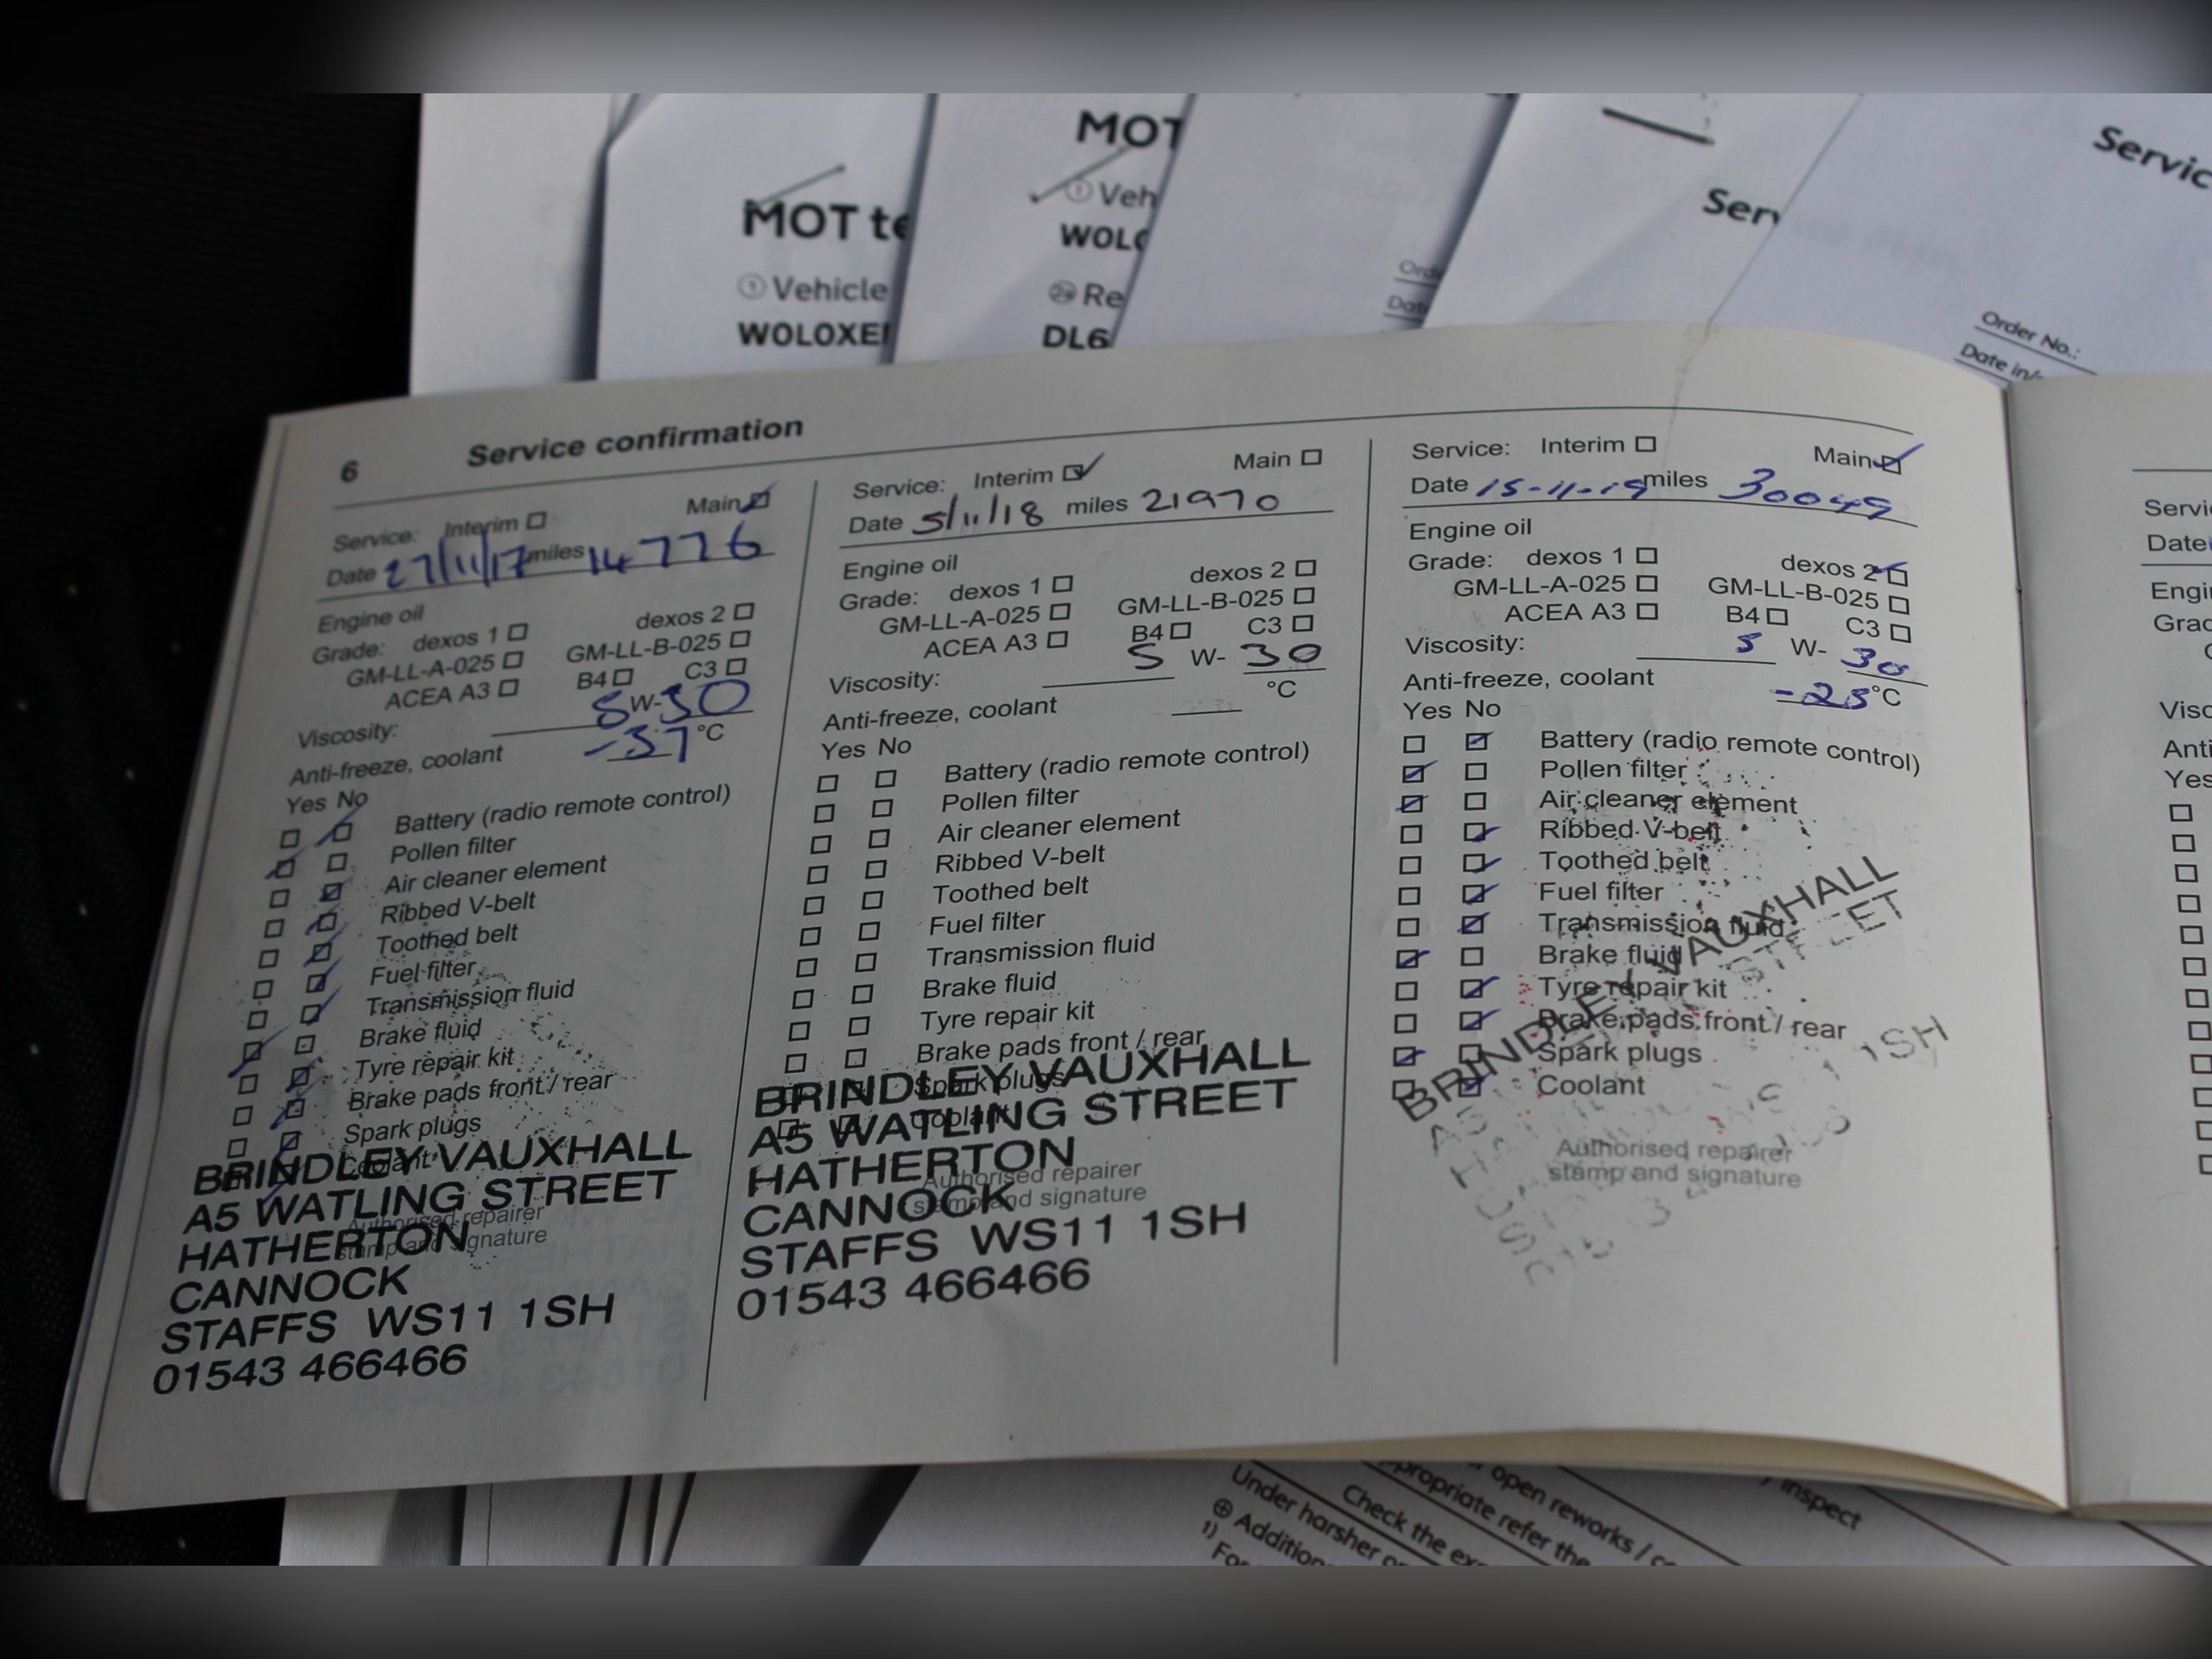 MOT te
① Vehicle
WOLOXE
MOT
① Veh
WOLO
Re
DL6
Ord
Date
Serv
Servic
Order No.:
Date in/
6 Service confirmation
Service: Interim Main
Date 27/11/17 miles 14776
Engine oil
Grade: dexos 1 dexos 2
GM-LL-A-025 GM-LL-B-025
ACEA A3 B4 C3
Viscosity: 5 W- 30
Anti-freeze, coolant -37 °C
Yes No
Battery (radio remote control)
Pollen filter
Air cleaner element
Ribbed V-belt
Toothed belt
Fuel filter
Transmission fluid
Brake fluid
Tyre repair kit
Brake pads front / rear
Spark plugs
Coolant
Authorised repairer
stamp and signature
BRINDLEY VAUXHALL
A5 WATLING STREET
HATHERTON
CANNOCK
STAFFS WS11 1SH
01543 466466
Service: Interim Main
Date 5/11/18 miles 21970
Engine oil
Grade: dexos 1 dexos 2
GM-LL-A-025 GM-LL-B-025
ACEA A3 B4 C3
Viscosity: 5 W- 30
Anti-freeze, coolant °C
Yes No
Battery (radio remote control)
Pollen filter
Air cleaner element
Ribbed V-belt
Toothed belt
Fuel filter
Transmission fluid
Brake fluid
Tyre repair kit
Brake pads front / rear
Spark plugs
Coolant
Authorised repairer
stamp and signature
BRINDLEY VAUXHALL
A5 WATLING STREET
HATHERTON
CANNOCK
STAFFS WS11 1SH
01543 466466
Service: Interim Main
Date 15-11-19 miles 30049
Engine oil
Grade: dexos 1 dexos 2
GM-LL-A-025 GM-LL-B-025
ACEA A3 B4 C3
Viscosity: 5 W- 30
Anti-freeze, coolant -25 °C
Yes No
Battery (radio remote control)
Pollen filter
Air cleaner element
Ribbed V-belt
Toothed belt
Fuel filter
Transmission fluid
Brake fluid
Tyre repair kit
Brake pads front / rear
Spark plugs
Coolant
Authorised repairer
stamp and signature
BRINDLEY VAUXHALL
STREET
1SH
Servi
Date
Engi
Grad
Visc
Anti
Yes
open reworks / c
y inspect
propriate refer the
Check the ex
Under harsher o
⊕ Addition
1) For